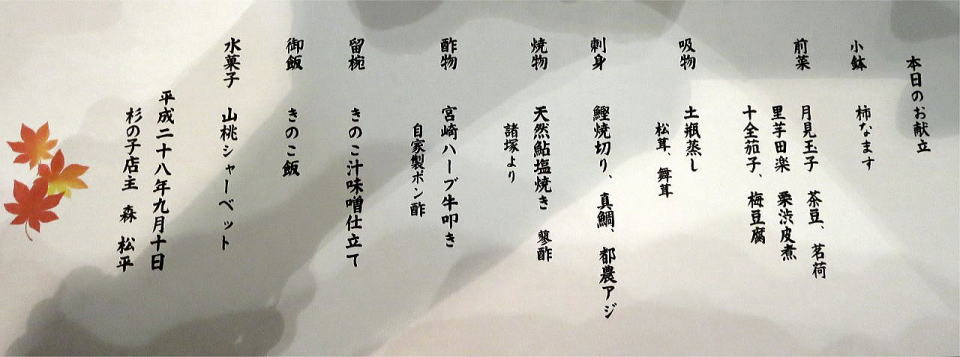 本日のお献立
小鉢 柿なます
前菜 月見玉子 茶豆、茗荷
里芋田楽 栗渋皮煮
十全茄子、梅豆腐
吸物 土瓶蒸し
松茸、舞茸
刺身 鰹焼切り、真鯛、都農アジ
焼物 天然鮎塩焼き 蓼酢
諸塚より
酢物 宮崎ハーブ牛叩き
自家製ポン酢
留椀 きのこ汁味噌仕立て
御飯 きのこ飯
水菓子 山桃シャーベット
平成二十八年九月十日
杉の子店主 森 松平